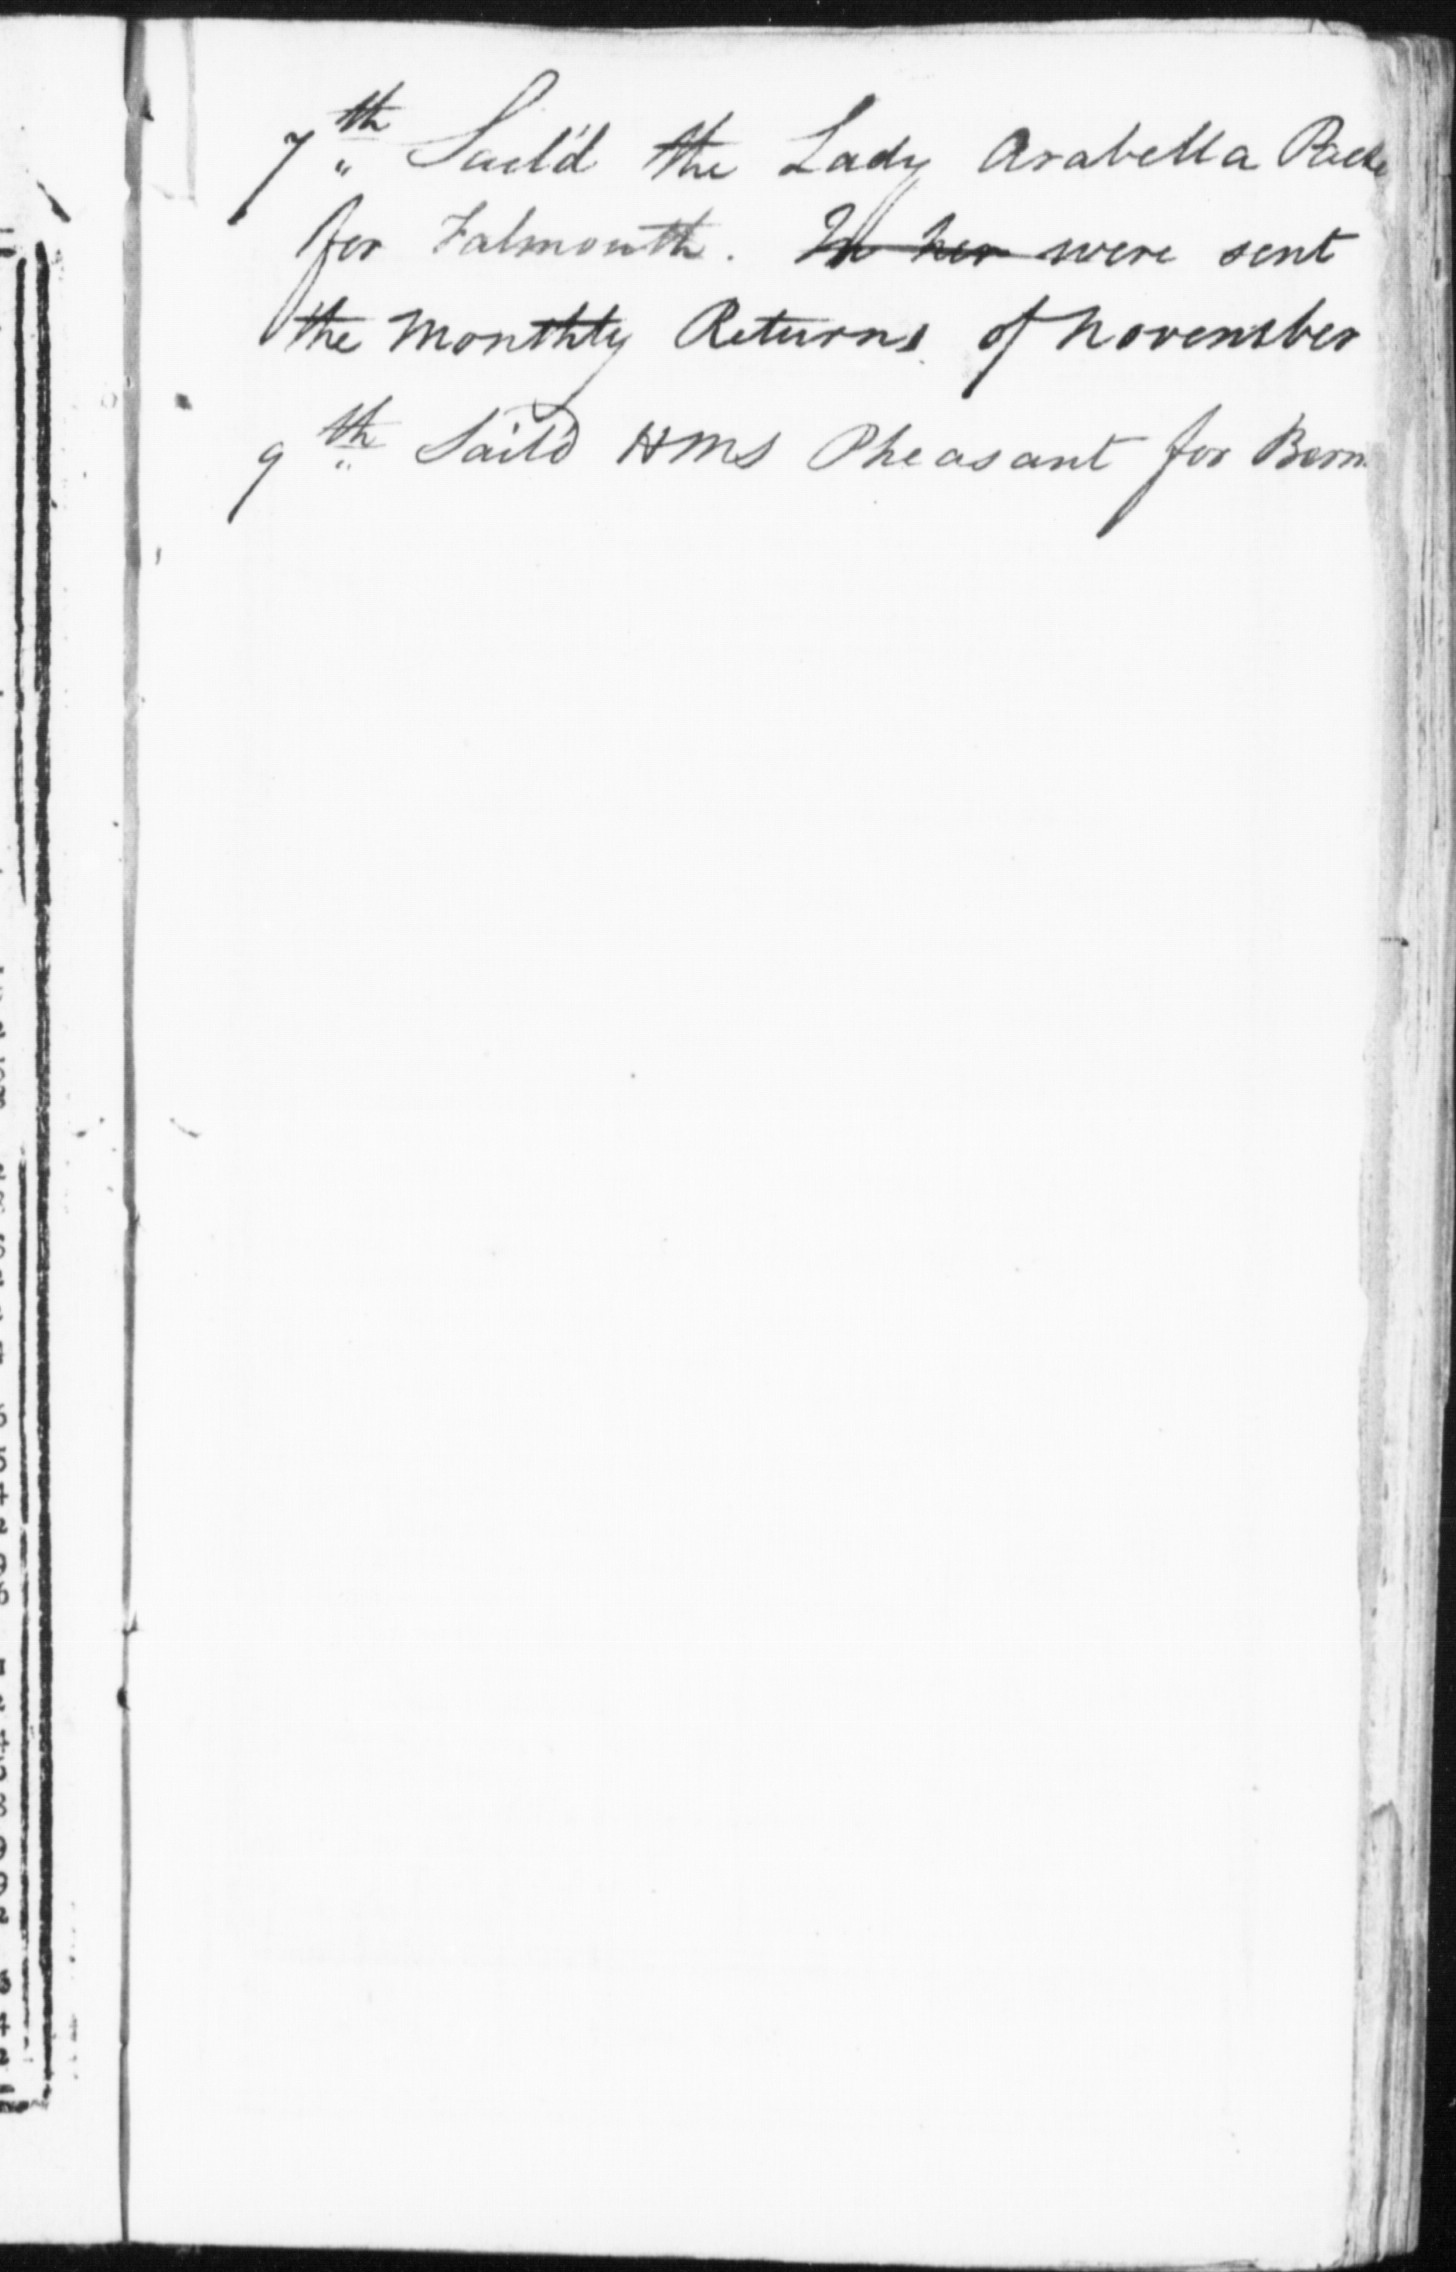 7th Sail'd the Lady Arabella Packe
for Falmouth. In her were sent
the Monthly Returns of November
9th Sail'd HMS Pheasant for Berm